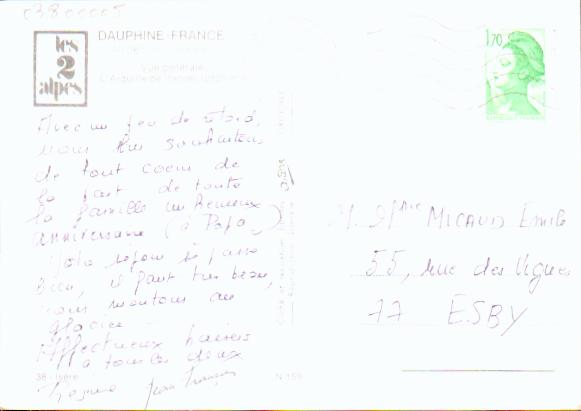 03800005
les
2
alpes
DAUPHINE-FRANCE
Vue générale
1,70
Avec un peu de retard,
nous lui souhaitons
de tout coeur de
la part de toute
la famille un heureux
anniversaire (à Papa)
Notre séjour se passe
bien, il fait très beau,
nous montons au
glacier
Affectueux baisers
à tous les deux
Jean François
M. et Mme MICAUD Emile
55, rue des Vignes
77 ESBY
38 - Isère
N 159